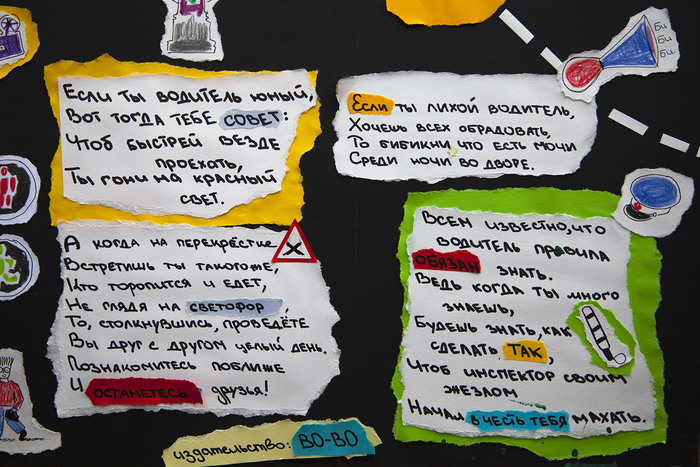 Если ты водитель юный,
Вот тогда тебе СОВЕТ:
Чтоб быстрей везде
проехать,
Ты гони на красный
свет.
А когда на перекрёстке
Встретишь ты такого же,
Кто торопится и едет,
Не глядя на светофор,
То, столкнувшись, проведёте
Вы друг с другом целый день.
Познакомитесь поближе
И останетесь друзья!
Если ты лихой водитель,
Хочешь всех обрадовать,
То бибикни что есть мочи
Среди ночи во дворе.
Би
Би
Би
Всем известно, что
водитель правила
ОБЯЗАН знать.
Ведь когда ты много
знаешь,
Будешь знать, как
сделать ТАК,
Чтоб инспектор своим
жезлом
Начал в честь тебя махать.
издательство: ВО-ВО